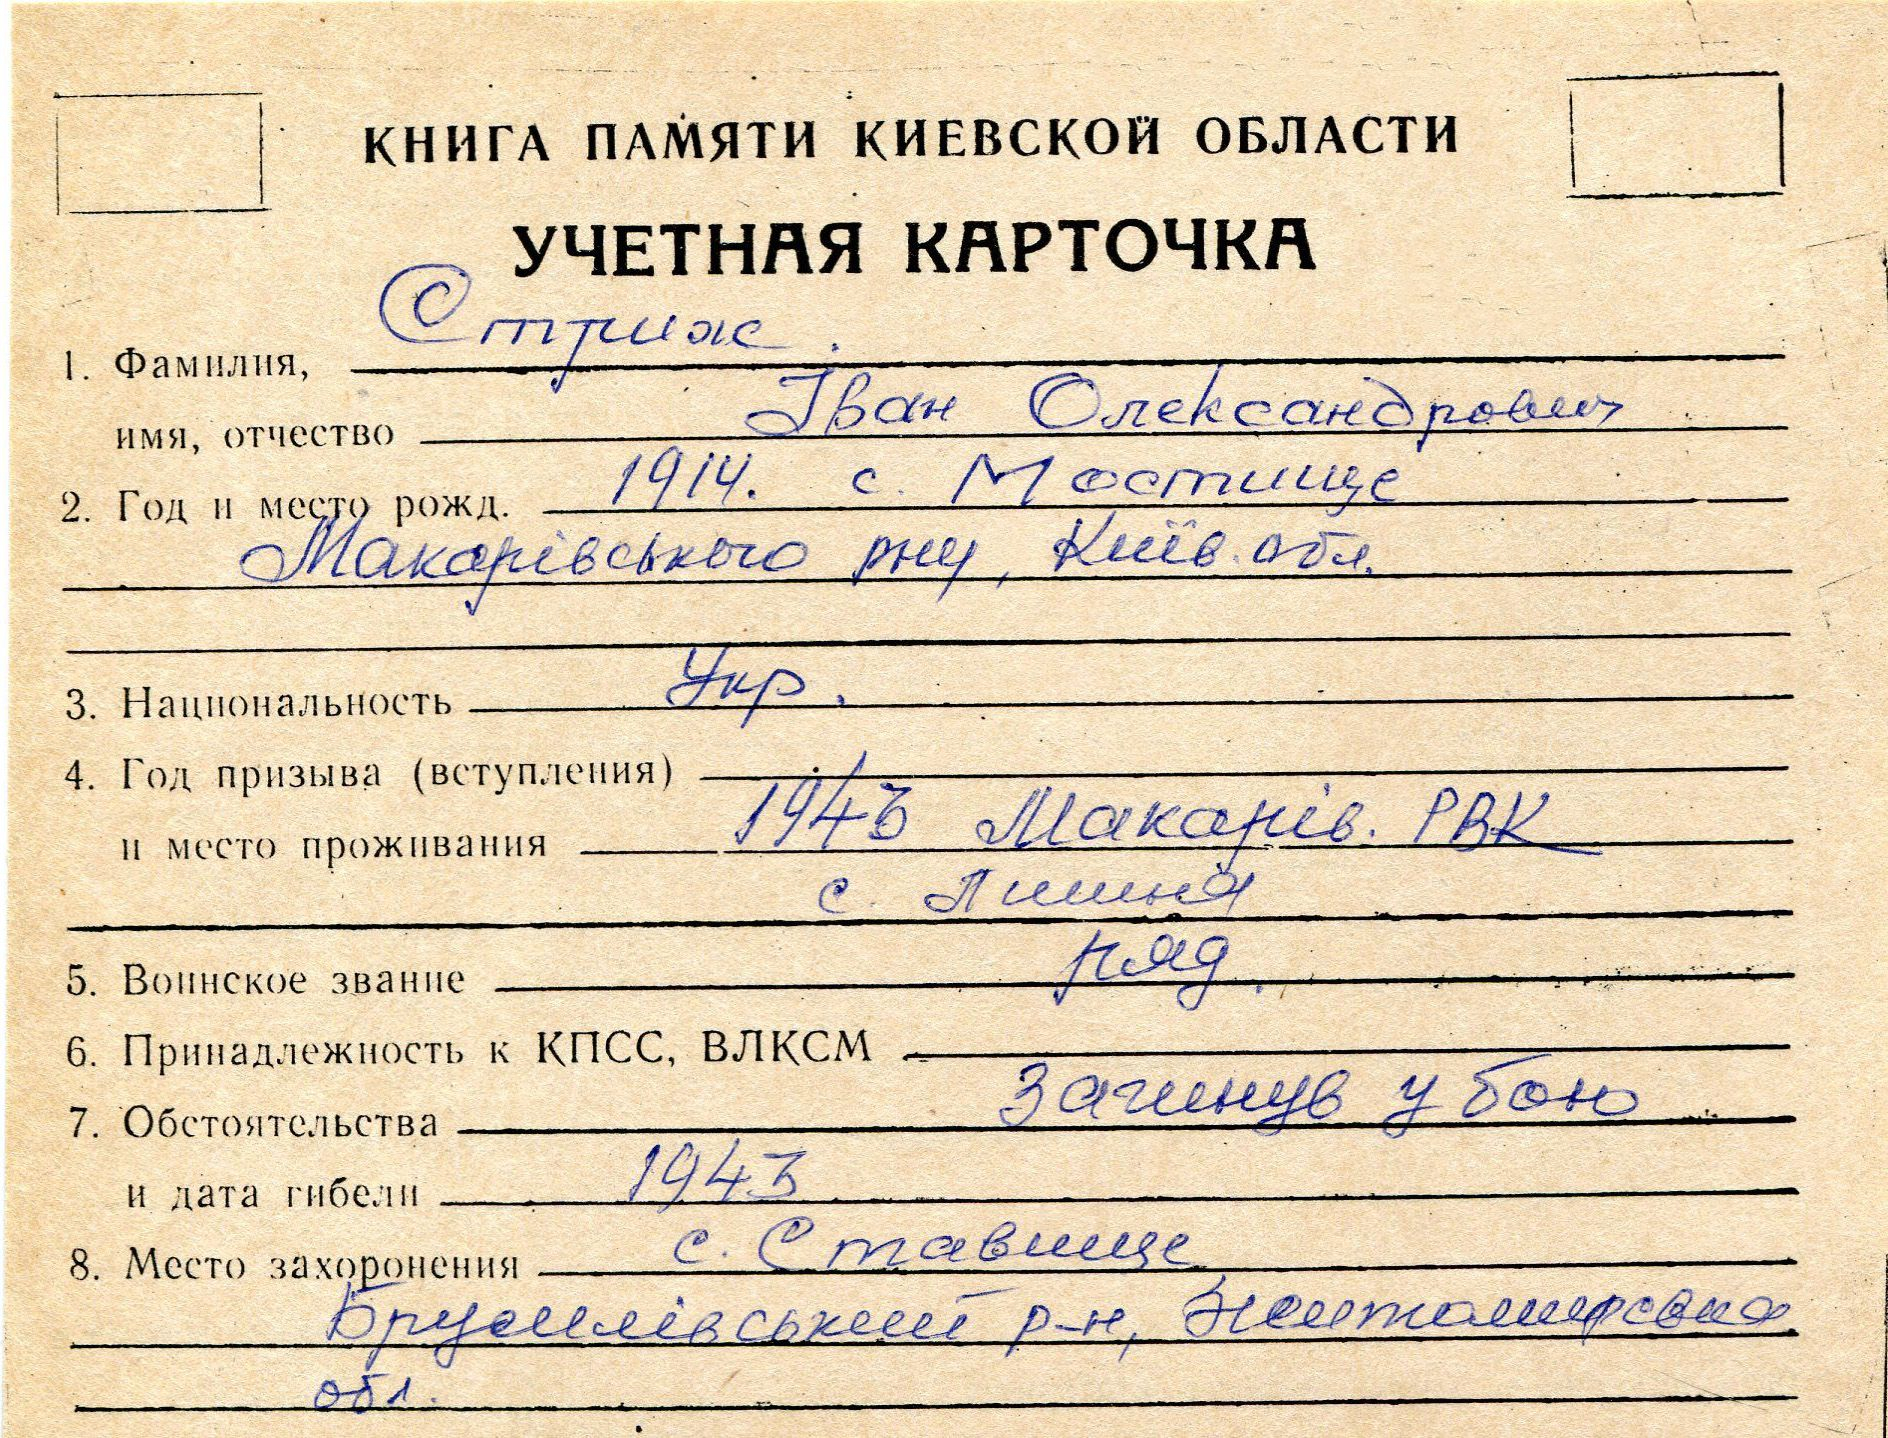 КНИГА ПАМЯТИ КИЕВСКОЙ ОБЛАСТИ
УЧЕТНАЯ КАРТОЧКА
1. Фамилия, Стриж.
имя, отчество Іван Олександрович
2. Год и место рожд. 1914. с. Мостище
Макарівського рну, Київ. обл.
3. Национальность Укр.
4. Год призыва (вступления)
и место проживания 1943 Макарів. РВК
с.
5. Воинское звание ряд.
6. Принадлежность к КПСС, ВЛКСМ
7. Обстоятельства Загинув у бою
и дата гибели 1943
8. Место захоронения с. Ставище
Брусилівський р-н, Житомирська
обл.